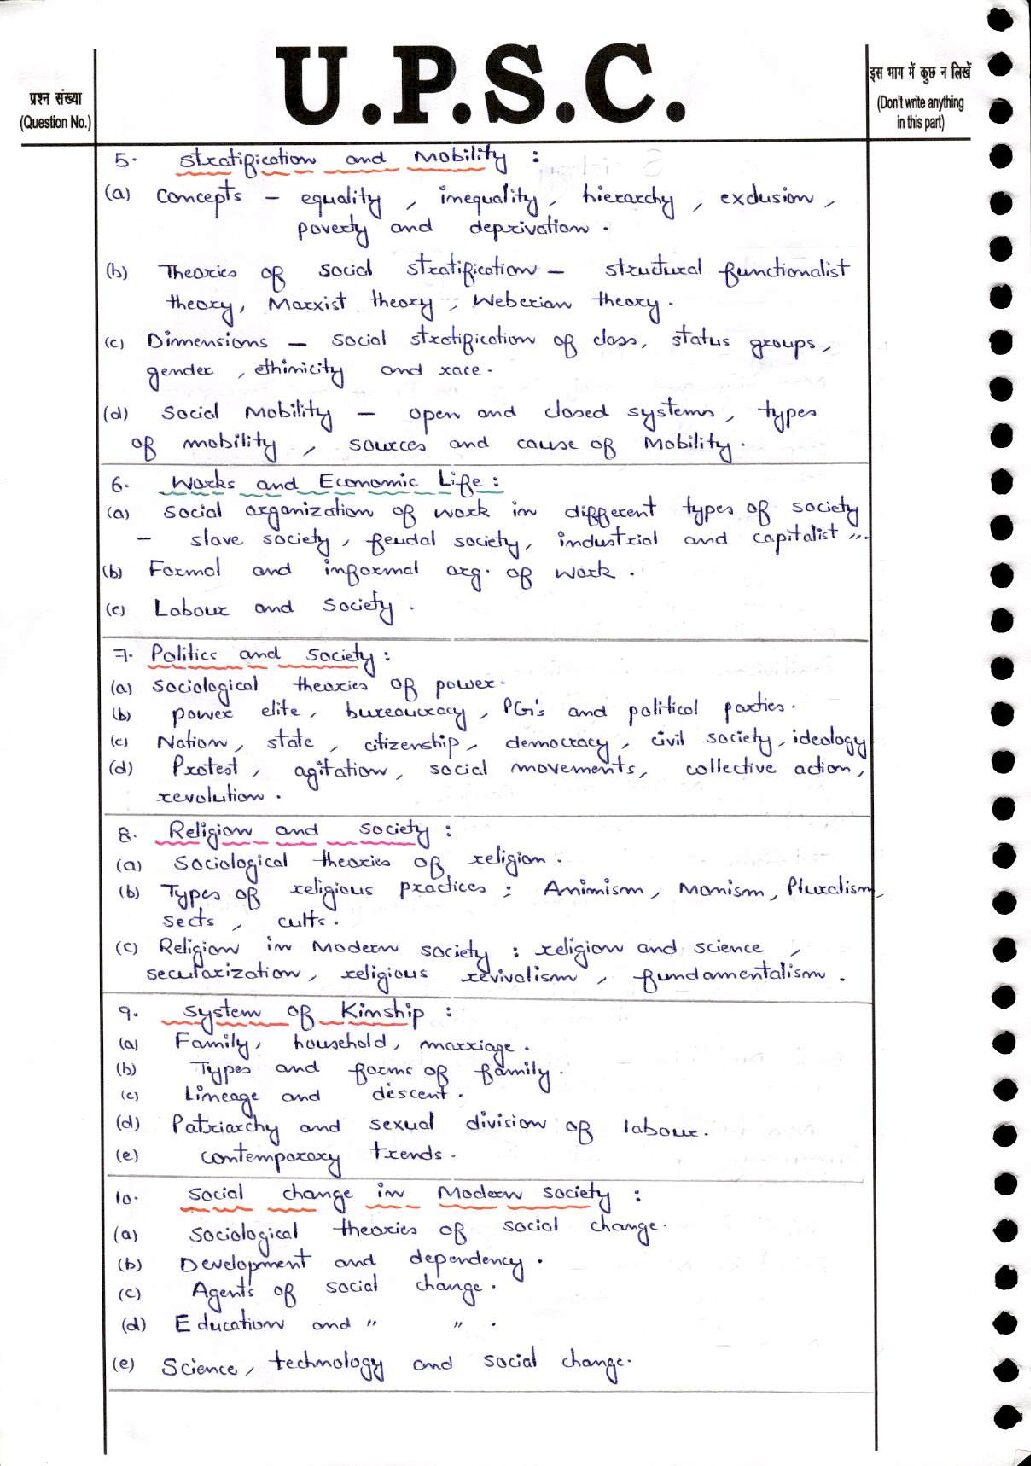 U.P.S.C.
प्रश्न संख्या
(Question No.)
इस भाग में कुछ न लिखें
(Don't write anything
in this part)
5. Stratification and Mobility :
(a) Concepts – equality, inequality, hierarchy, exclusion,
poverty and deprivation.
(b) Theories of social stratification – structural functionalist
theory, Marxist theory, Weberian theory.
(c) Dimensions – social stratification of class, status groups,
gender, ethinicity and race.
(d) Social Mobility – open and closed systems, types
of mobility, sources and cause of Mobility.
6. Works and Economic Life :
(a) social organization of work in different types of society
– slave society, feudal society, industrial and capitalist ".
(b) Formal and informal org. of work.
(c) Labour and society.
7. Politics and Society :
(a) Sociological theories of power.
(b) power elite, bureaucracy, PG's and political parties.
(c) Nation, state, citizenship, democracy, civil society, ideology
(d) Protest, agitation, social movements, collective action,
revolution.
8. Religion and society :
(a) Sociological theories of religion.
(b) Types of religious practices ; Animism, Monism, Pluralism,
sects, cults.
(c) Religion in Modern society : religion and science,
secularization, religious revivalism, fundamentalism.
9. System of Kinship :
(a) Family, household, marriage.
(b) Types and forms of family.
(c) Lineage and descent.
(d) Patriarchy and sexual division of labour.
(e) contemporary trends.
10. Social change in Modern society :
(a) Sociological theories of social change.
(b) Development and dependency.
(c) Agents of social change.
(d) Education and " " .
(e) Science, technology and social change.